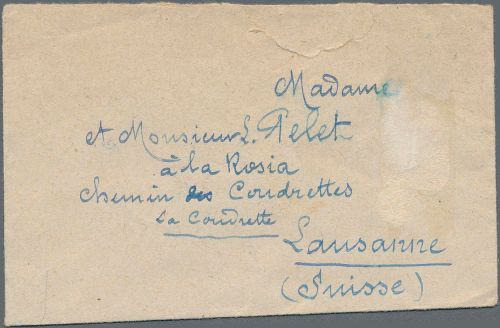 Madame
et Monsieur L. Pelet
à la Rosia
Chemin des Coudrettes
La Coudrette
Lausanne
(Suisse)